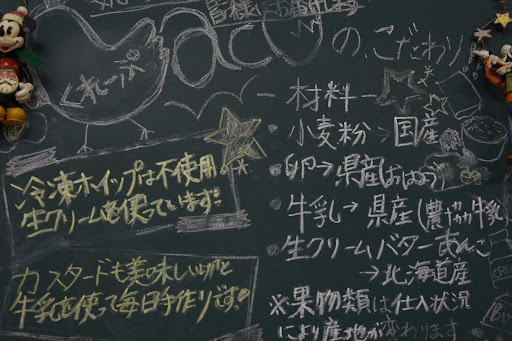 皆様に
acuのこだわり
くれーぷ
ー材料ー
・小麦粉→国産
・卵→県産
・牛乳→県産(農協牛乳
・生クリームバターあんこ
→北海道産
※果物類は仕入状況
により産地が変わります
冷凍ホイップは不使用
生クリームを使っています!
カスタードも美味しい卵と
牛乳を使って毎日手作りです!